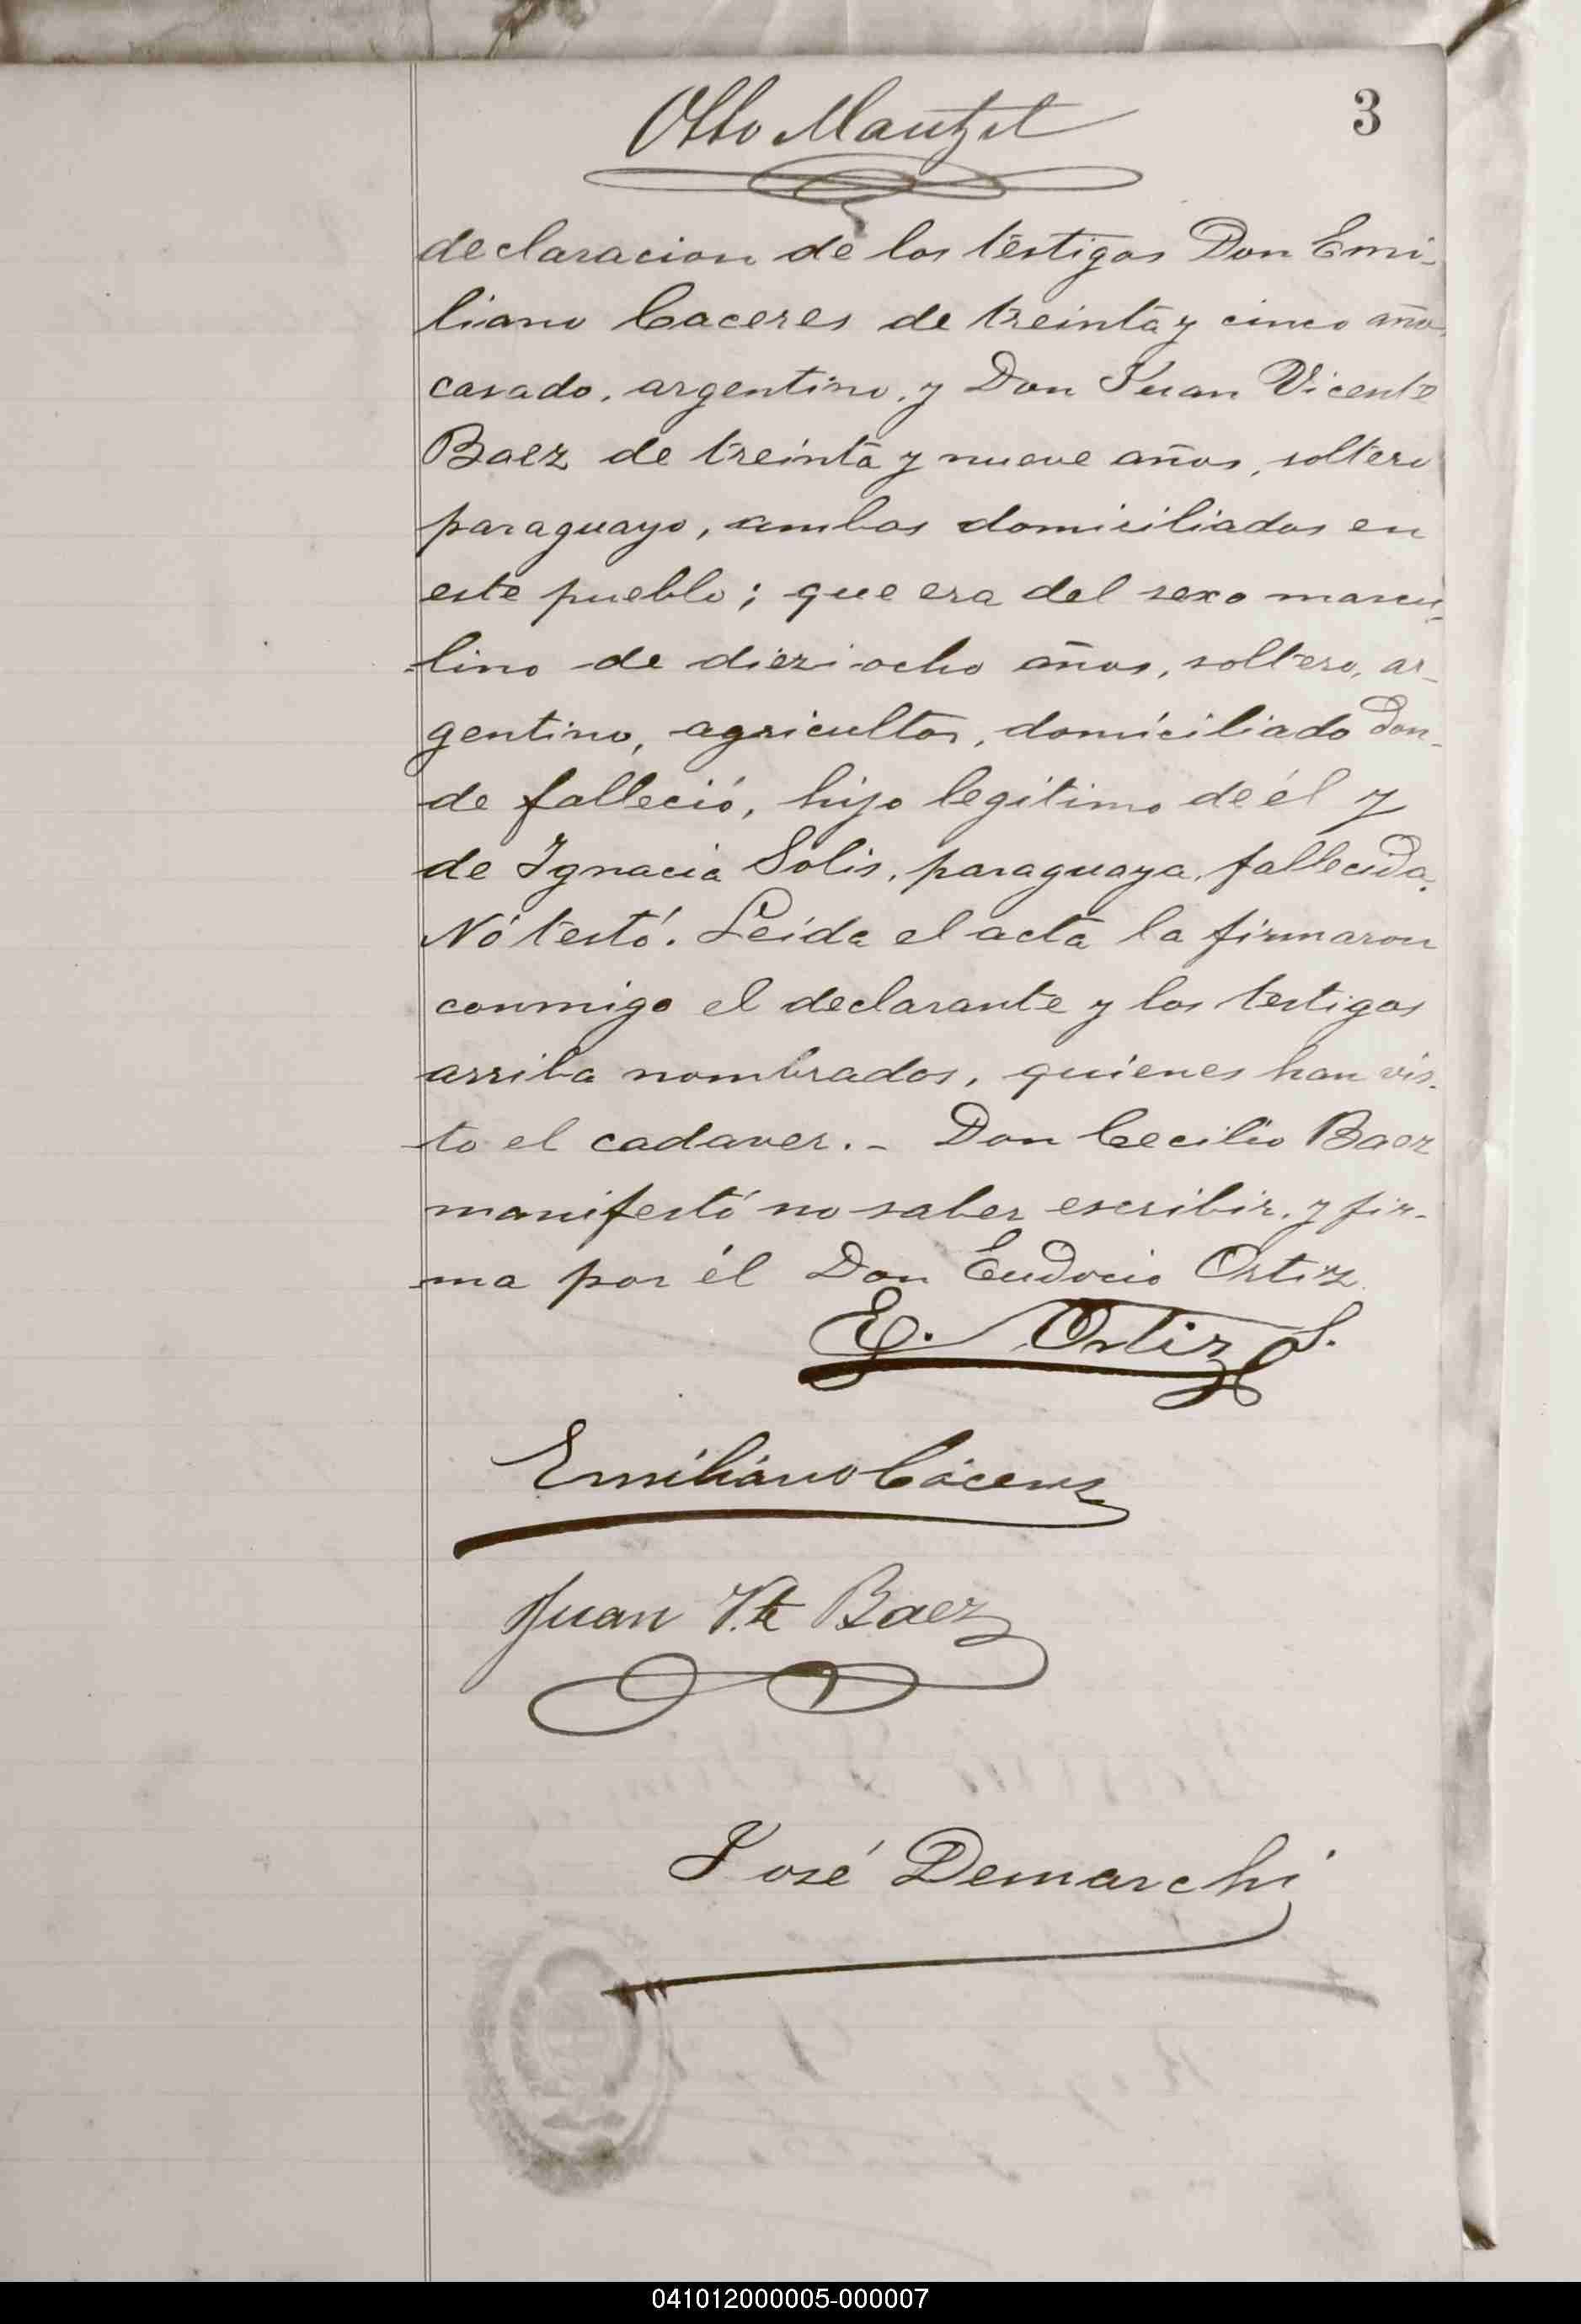 Otto Mautzet
3
declaracion de los testigos Don Emi-
liano Caceres de treinta y cinco años
casado, argentino, y Don Juan Vicente
Baez de treinta y nueve años, soltero
paraguayo, ambos domiciliados en
este pueblo; que era del sexo mascu-
lino de dieziocho años, soltero, ar-
gentino, agricultor, domiciliado don-
de falleció, hijo legitimo de él y
de Ignacia Solis, paraguaya, fallecida.
Nó testó. Leida el acta la firmaron
conmigo el declarante y los testigos
arriba nombrados, quienes han vis-
to el cadaver. - Don Cecilio Baez
manifestó no saber escribir, y fir-
ma por él Don Eudocio Ortiz
E. Ortiz S.
Emiliano Cáceres
Juan Vte Baez
José Demarchi
041012000005-000007